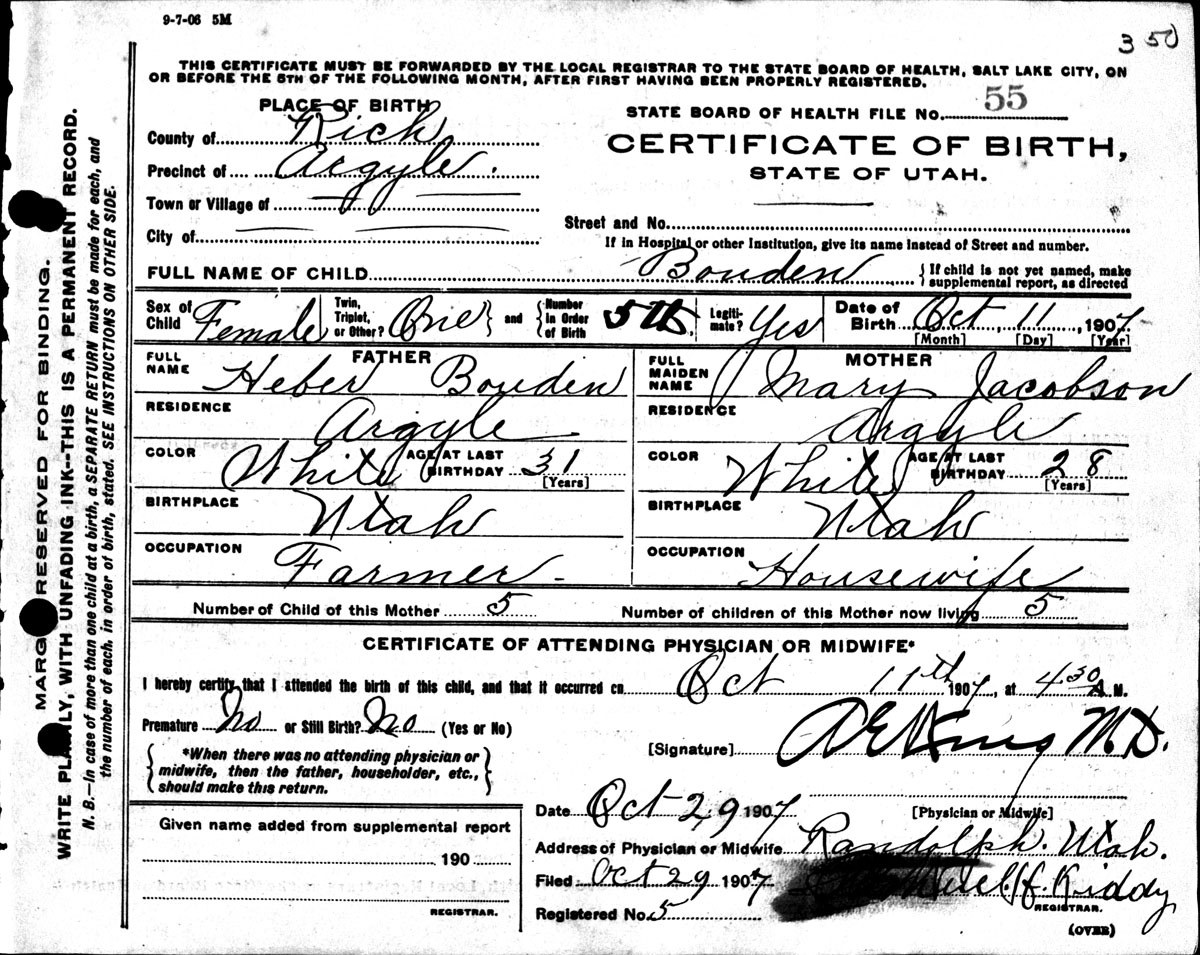 9-7-06 5M
3 50
THIS CERTIFICATE MUST BE FORWARDED BY THE LOCAL REGISTRAR TO THE STATE BOARD OF HEALTH, SALT LAKE CITY, ON
OR BEFORE THE 5TH OF THE FOLLOWING MONTH, AFTER FIRST HAVING BEEN PROPERLY REGISTERED.
PLACE OF BIRTH
STATE BOARD OF HEALTH FILE No. 55
County of Rich
CERTIFICATE OF BIRTH,
Precinct of Argyle.
STATE OF UTAH.
Town or Village of
Street and No.
City of
If in Hospital or other Institution, give its name instead of Street and number.
FULL NAME OF CHILD Bouden {If child is not yet named, make
supplemental report, as directed
Sex of Child Female Twin, Triplet, or Other? One} and {Number in Order of Birth 5th Legiti-mate? Yes Date of Birth Oct, 11, 1907
[Month] [Day] [Year]
FATHER MOTHER
FULL NAME Heber Bouden FULL MAIDEN NAME Mary Jacobson
RESIDENCE Argyle RESIDENCE Argyle
COLOR White AGE AT LAST BIRTHDAY 31 [Years] COLOR White AGE AT LAST BIRTHDAY 28 [Years]
BIRTHPLACE Utah BIRTHPLACE Utah
OCCUPATION Farmer OCCUPATION Housewife
Number of Child of this Mother 5 Number of children of this Mother now living 5
CERTIFICATE OF ATTENDING PHYSICIAN OR MIDWIFE*
I hereby certify that I attended the birth of this child, and that it occurred on Oct 11th 1907, at 4 30 A M.
Premature No or Still Birth? No (Yes or No)
[Signature] M.D.
{*When there was no attending physician or
midwife, then the father, householder, etc.,
should make this return.}
Date Oct 29 1907 [Physician or Midwife]
Given name added from supplemental report
Address of Physician or Midwife Randolph. Utah.
190
Filed Oct 29 1907 Kiddy
REGISTRAR. REGISTRAR.
Registered No. 5
(OVER)
MARGIN RESERVED FOR BINDING.
WRITE PLAINLY, WITH UNFADING INK--THIS IS A PERMANENT RECORD.
N. B.—In case of more than one child at a birth, a SEPARATE RETURN must be made for each, and
the number of each, in order of birth, stated. SEE INSTRUCTIONS ON OTHER SIDE.